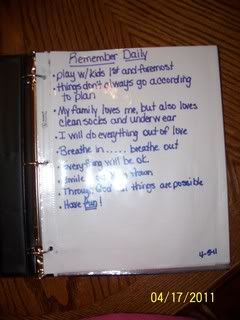 Remember Daily
• play w/kids 1st and foremost
• things don't always go according
to plan
• My family loves me, but also loves
clean socks and underwear
• I will do everything out of love
• Breathe in..... breathe out
• everything will be ok
• Smile
• Through God all things are possible
• Have fun!
04/17/2011